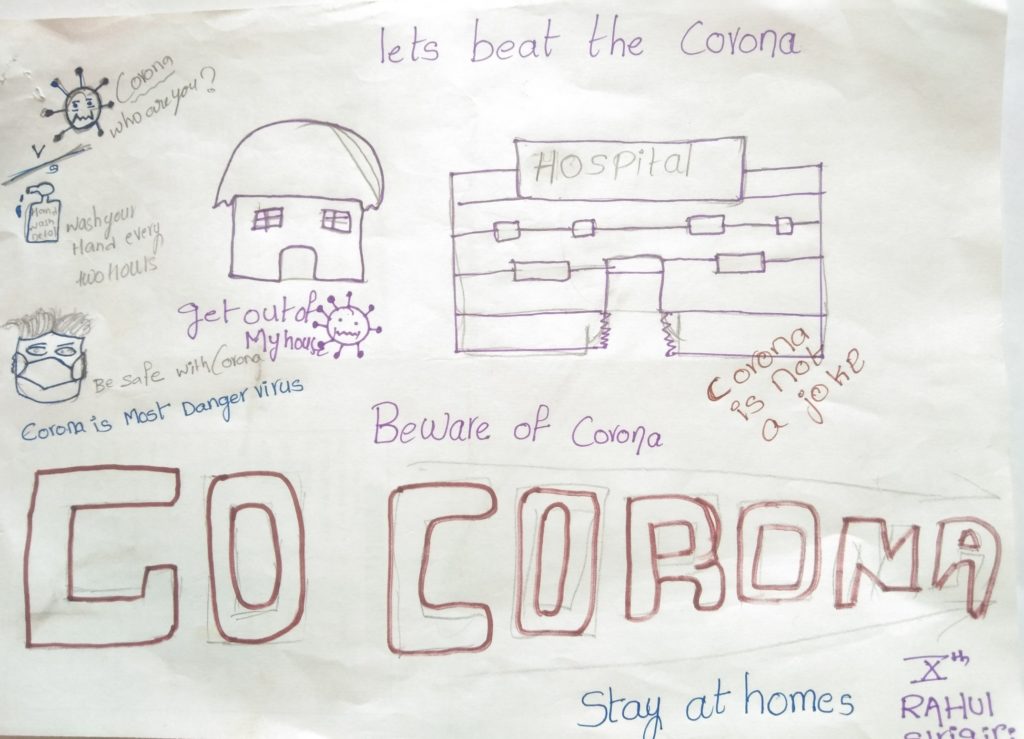 lets beat the Corona
Corona
who are you?
V
S
Hand
wash
Detol
wash your
Hand every
two Hours
Hospital
get out of
My house
Be safe with Corona
Corona is Most Danger virus
Corona
is not
a joke
Beware of Corona
GO CORONA
Stay at homes
Xth
RAHUL